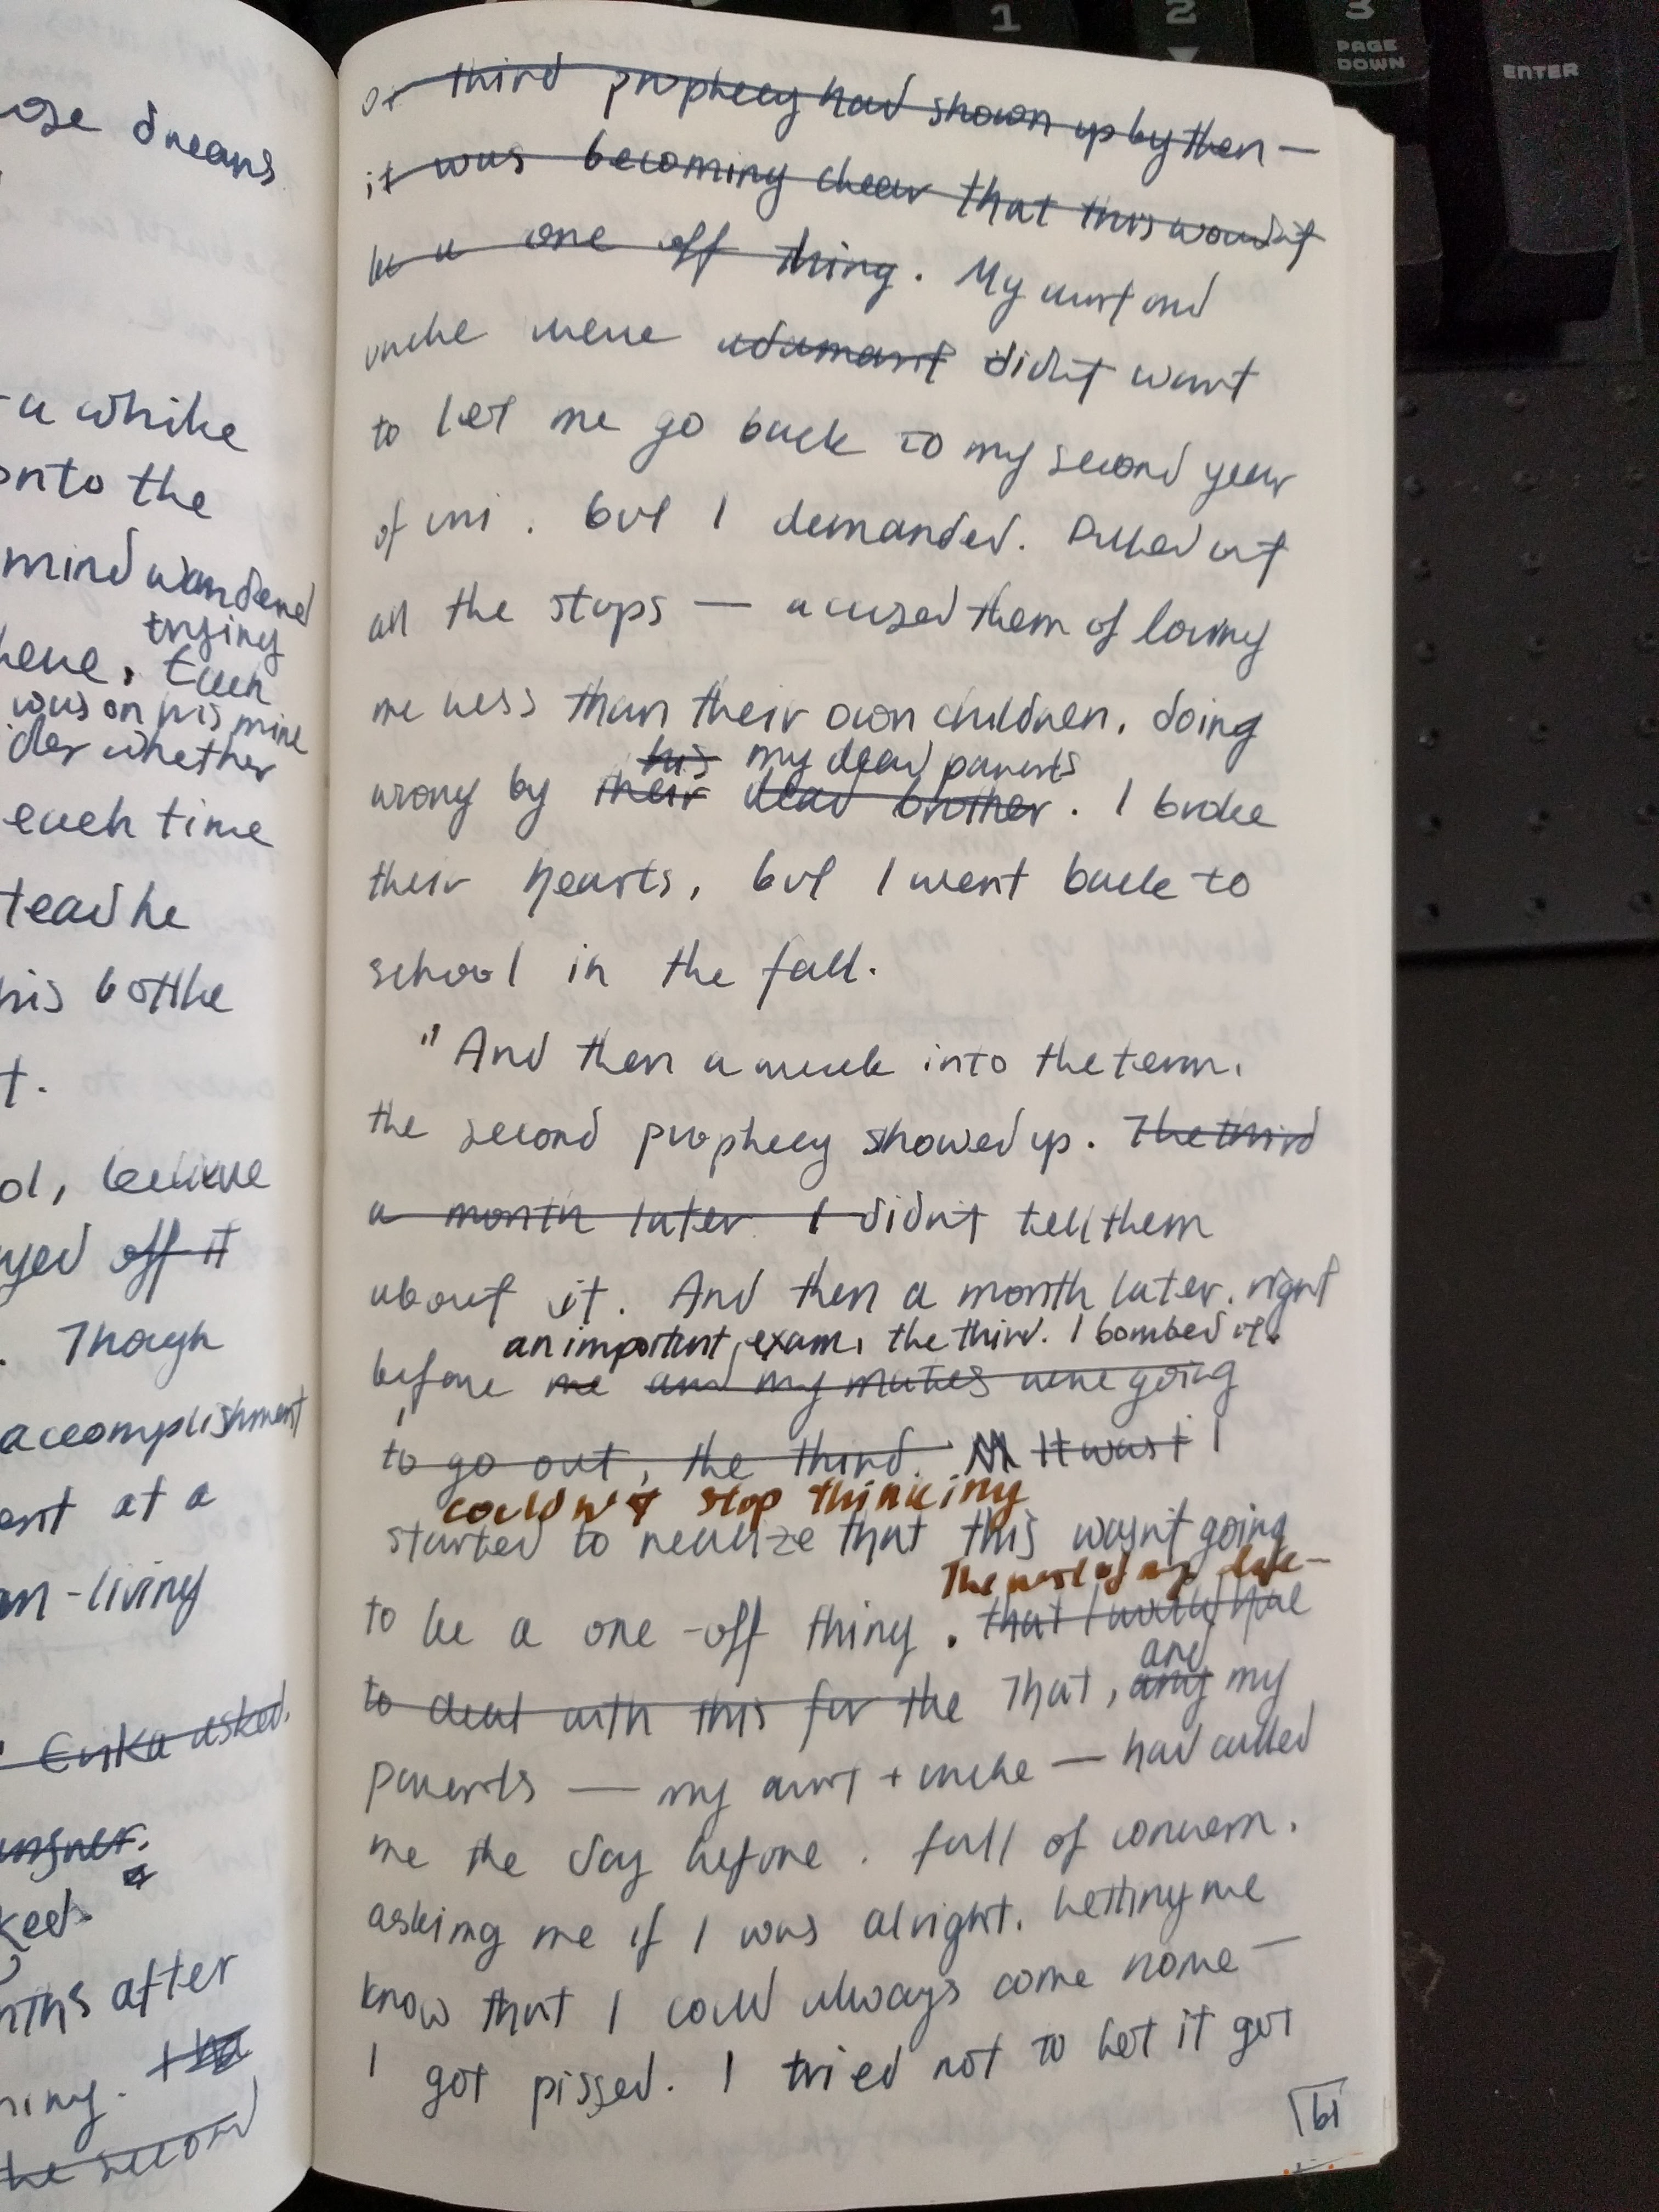 1
2
3
PAGE
DOWN
ENTER
dreams
a while
onto the
mind wandered
trying
each
was on his mine
whether
each time
he
his bottle
t.
believe
off it
. Though
accomplishment
at a
-living
Erika asked.
answer.
after
the
the second
or third prophecy had shown up by then —
it was becoming clear that this wouldn't
be a one off thing. My aunt and
uncle were adamant didn't want
to let me go back to my second year
of uni. but I demanded. Pulled out
all the stops — accused them of loving
me less than their own children, doing
his my dead parents
wrong by their dead brother. I broke
their hearts, but I went back to
school in the fall.
"And then a week into the term,
the second prophecy showed up. The third
a month later I didn't tell them
about it. And then a month later, right
an important exam, the third. I bombed it.
before me and my mates were going
to go out, the third. It wasn't I
couldn't stop thinking
started to realize that this wasn't going
The rest of my life—
to be a one-off thing. that I would have
and
to deal with this for the That, any my
parents — my aunt + uncle — had called
me the day before. full of concern.
asking me if I was alright. Letting me
know that I could always come home —
I got pissed. I tried not to let it get
61